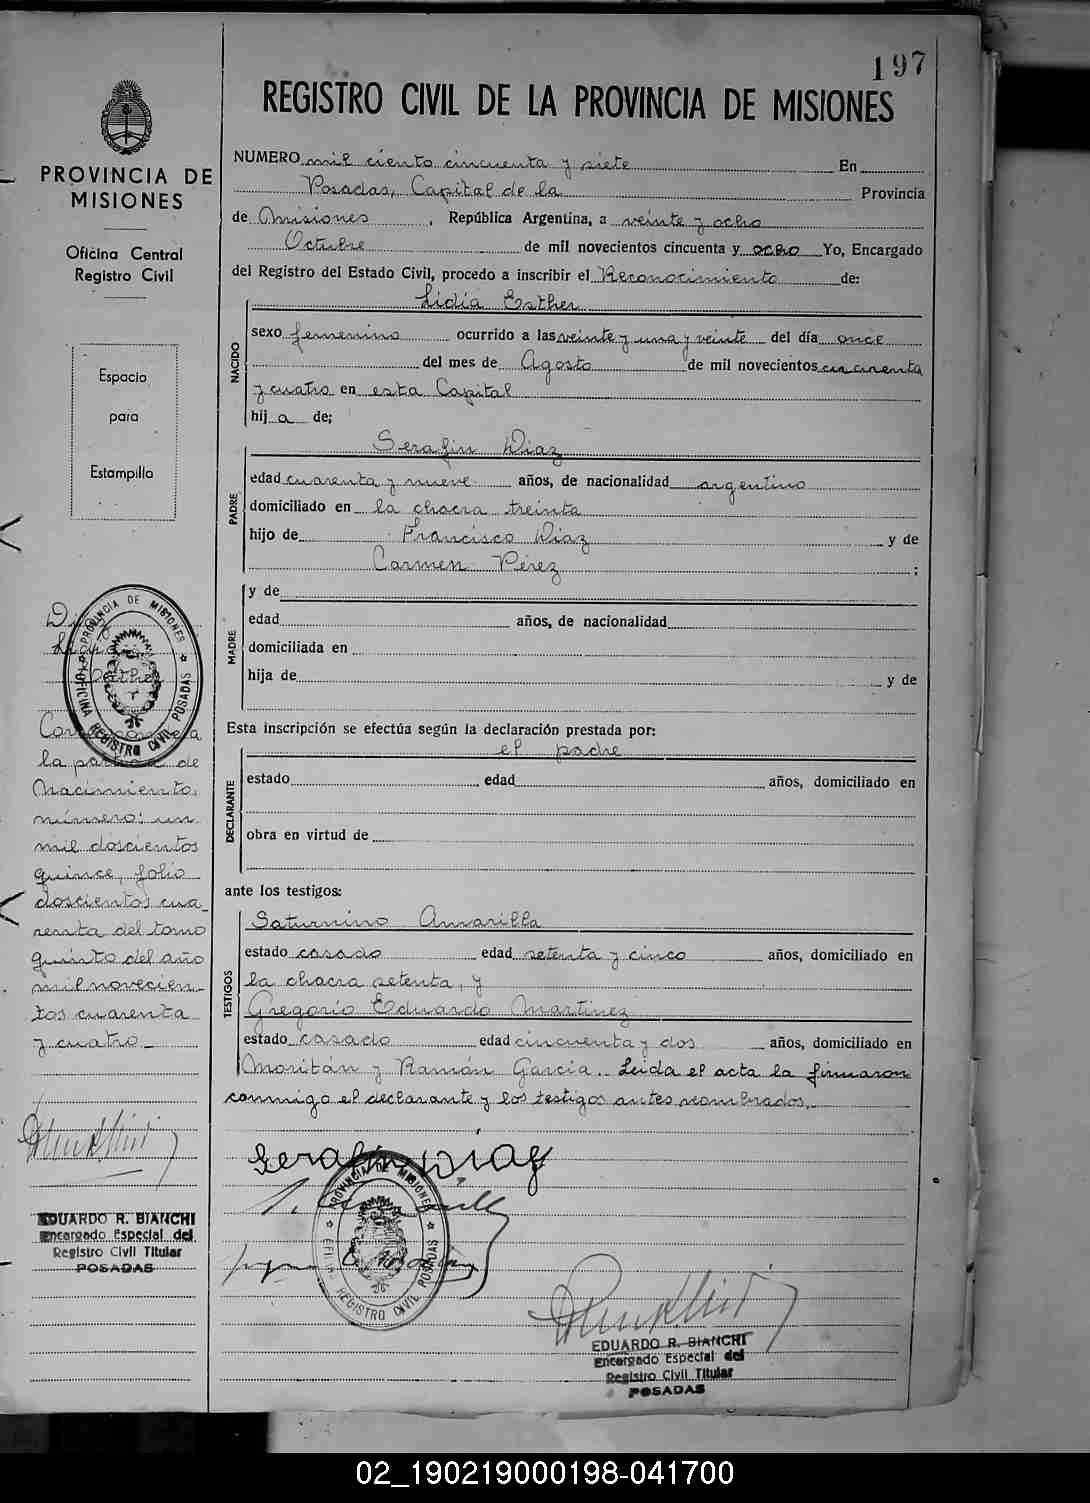 197
REGISTRO CIVIL DE LA PROVINCIA DE MISIONES
PROVINCIA DE
MISIONES
Oficina Central
Registro Civil
Espacio
para
Estampilla
Diaz
Lidia
Esther
Corresponde a
la partida de
Nacimiento,
número: un
mil doscientos
quince, folio
doscientos cua_
renta del tomo
quinto del año
mil novecien_
tos cuarenta
y cuatro._
EDUARDO R. BIANCHI
Encargado Especial del
Registro Civil Titular
POSADAS
NUMERO mil ciento cincuenta y siete En
Posadas, Capital de la Provincia
de Misiones, República Argentina, a veinte y ocho
Octubre de mil novecientos cincuenta y ocho Yo, Encargado
del Registro del Estado Civil, procedo a inscribir el Reconocimiento de:
NACIDO
Lidia Esther
sexo femenino ocurrido a las veinte y una y veinte del día once
del mes de Agosto de mil novecientos cincuenta
y cuatro en esta Capital
hij a de;
PADRE
Serafin Diaz
edad cuarenta y nueve años, de nacionalidad argentino
domiciliado en la chacra treinta
hijo de Francisco Diaz y de
Carmen Pérez ;
MADRE
y de
edad años, de nacionalidad
domiciliada en
hija de y de
Esta inscripción se efectúa según la declaración prestada por:
DECLARANTE
el padre
estado edad años, domiciliado en
obra en virtud de
ante los testigos:
TESTIGOS
Saturnino Amarilla
estado casado edad setenta y cinco años, domiciliado en
la chacra setenta, y
Gregorio Eduardo Martinez
estado casado edad cincuenta y dos años, domiciliado en
Moritán y Ramón Garcia. Leida el acta la firmaron
conmigo el declarante y los testigos antes nombrados.
Serafin Diaz
PROVINCIA DE MISIONES
OFICINA REGISTRO CIVIL POSADAS
EDUARDO R. BIANCHI
Encargado Especial del
Registro Civil Titular
POSADAS
02_190219000198-041700